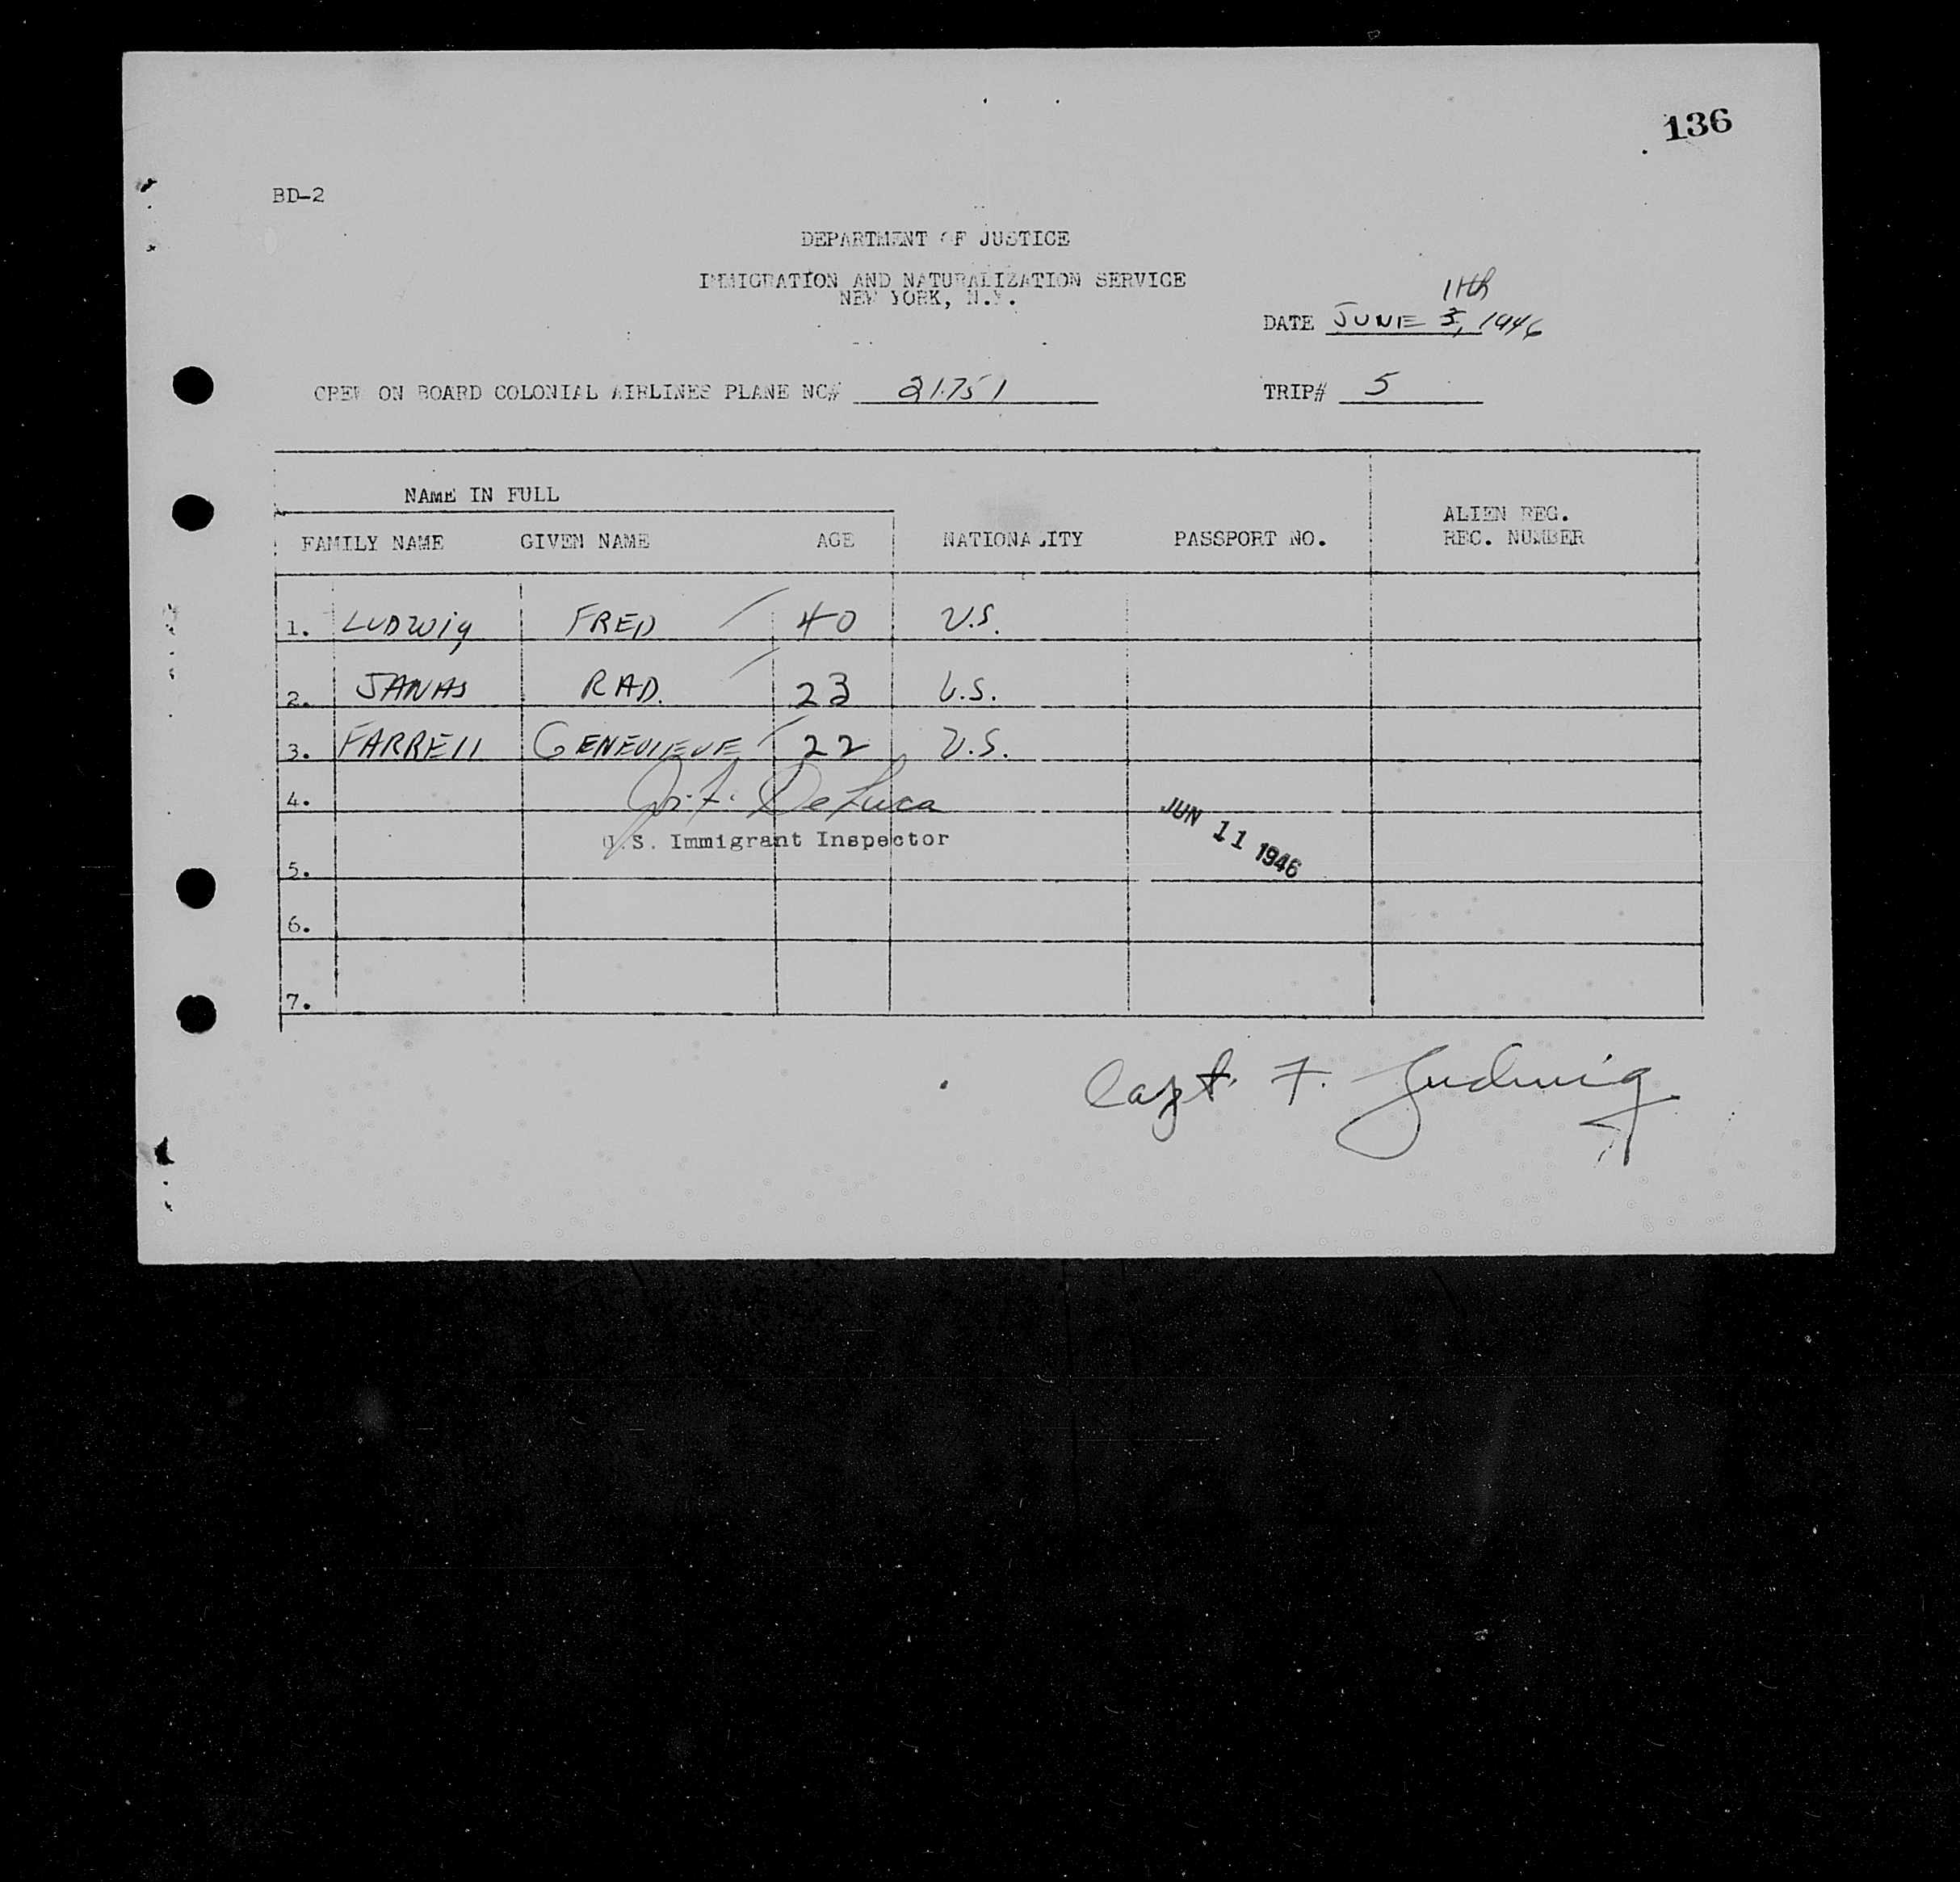 136
BD-2
DEPARTMENT OF JUSTICE
IMMIGRATION AND NATURALIZATION SERVICE
NEW YORK, N.Y.
11th
DATE JUNE 3, 1946
CREW ON BOARD COLONIAL AIRLINES PLANE NC# 21751 TRIP# 5
NAME IN FULL
FAMILY NAME GIVEN NAME AGE NATIONALITY PASSPORT NO. ALIEN REG. REC. NUMBER
1. LUDWIG FRED 40 U.S.
2. JANAS RAD. 23 U.S.
3. FARRELL GENEVIEVE 22 U.S.
4. De Luca
JUN 11 1946
U.S. Immigrant Inspector
5.
6.
7.
Capt. F. Ludwig